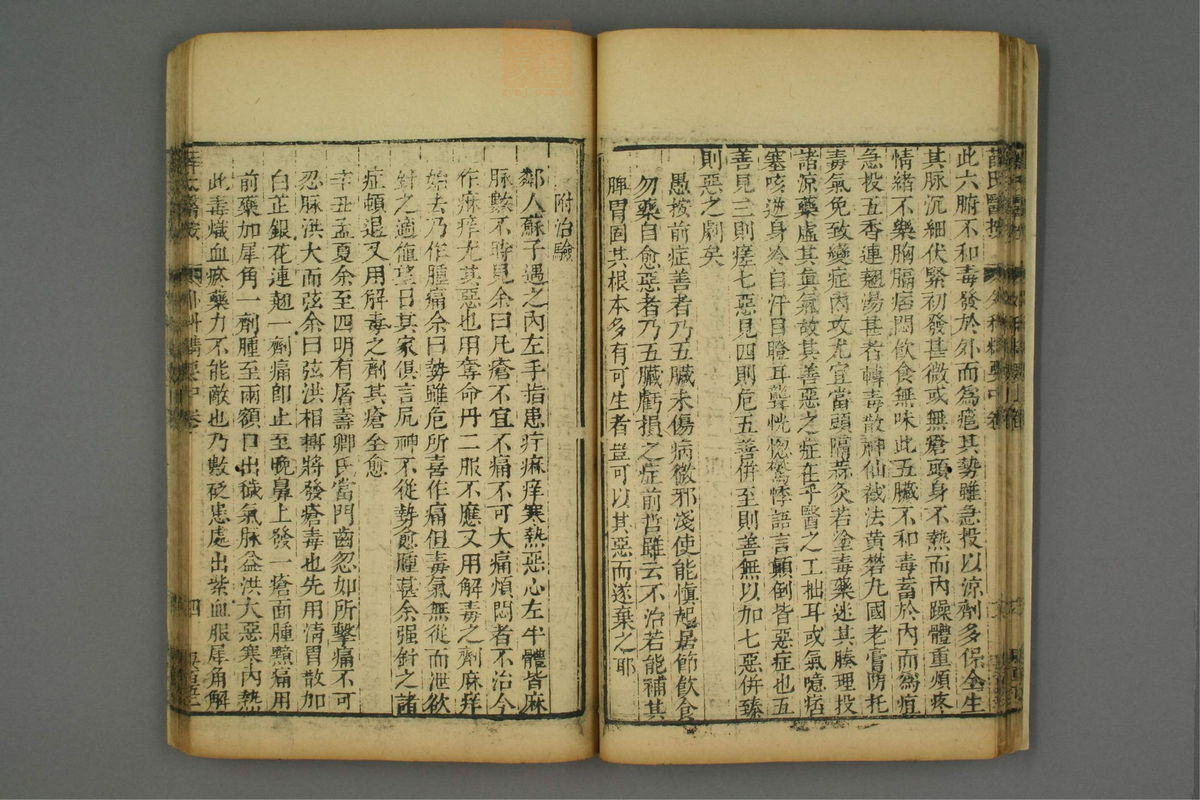 此六腑不和毒發於外而爲瘡其勢雖急投以涼劑多保全生
其脉沉細伏緊初發甚微或無瘡頭身不熱而內躁體重煩疼
情緒不樂胸膈痞悶飲食無味此五臟不和毒蓄於內而爲疽
急投五香連翹湯甚者轉毒散神仙截法黃礬丸國老膏防托
毒氣免致變症內攻尤宜當頭隔蒜灸若塗毒藥迷其腠理投
諸涼藥虛其真氣故其善惡之症在乎醫之工拙耳或氣噫痞
塞咳逆身冷自汗目瞪耳聾恍惚驚悸語言顚倒皆惡症也五
善見三則瘥七惡見四則危五善併至則善無以加七惡併臻
則惡之劇矣
愚按前症善者乃五臟未傷病微邪淺使能愼起居節飲食
勿藥自愈惡者乃五臟虧損之症前哲雖云不治若能補其
脾胃固其根本多有可生者豈可以其惡而遂棄之耶
附治驗
鄰人蘇子遇之內左手指患疔麻痒寒熱惡心左半體皆麻
脉數不時見余曰凡瘡不宜不痛不可大痛煩悶者不治今
作麻痒尤其惡也用奪命丹二服不應又用解毒之劑麻痒
始去乃作腫痛余曰勢雖危所喜作痛但毒氣無從而泄欲
針之適値望日其家俱言尻神不從勢愈腫甚余强針之諸
症頓退又用解毒之劑其瘡全愈
辛丑孟夏余至四明有屠壽卿氏當門齒忽如所擊痛不可
忍脉洪大而弦余曰弦洪相轉將發瘡毒也先用淸胃散加
白芷銀花連翹一劑痛卽止至晚鼻上發一瘡面腫黯痛用
前藥加犀角一劑腫至兩額口出穢氣脉益洪大惡寒內熱
此毒熾血瘀藥力不能敵也乃數砭患處出紫血服犀角解
薛氏醫按
外科精要中卷
四